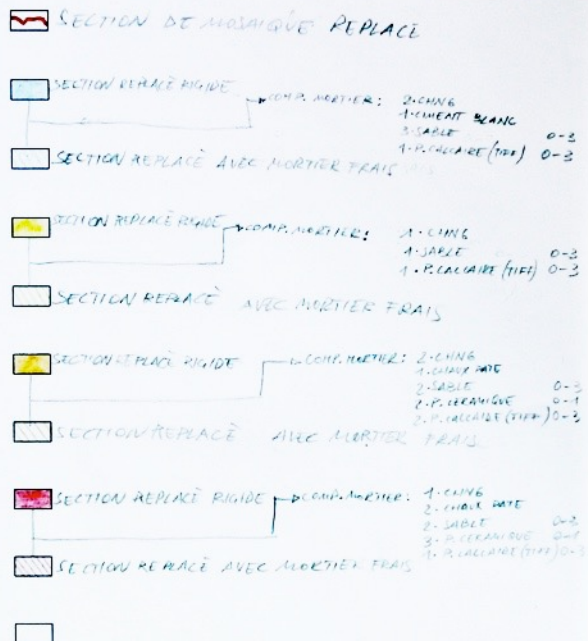 SECTION DE MOSAIQUE REPLACÉ
SECTION REPLACÉ RIGIDE
COMP. MORTIER: 2-CHN6
1-CIMENT BLANC
3-SABLE 0-3
1-P.CALCAIRE (TIFF) 0-3
SECTION REPLACÉ AVEC MORTIER FRAIS
SECTION REPLACÉ RIGIDE
COMP. MORTIER: 1-CHN6
1-SABLE 0-3
1-P.CALCAIRE (TIFF) 0-3
SECTION REPLACÉ AVEC MORTIER FRAIS
SECTION REPLACÉ RIGIDE
COMP. MORTIER: 2-CHN6
1-CHAUX PATE
2-SABLE 0-3
2-P.CERAMIQUE 0-1
2-P.CALCAIRE (TIFF) 0-3
SECTION REPLACÉ AVEC MORTIER FRAIS
SECTION REPLACÉ RIGIDE
COMP. MORTIER: 1-CHN6
2-CHAUX PATE
2-SABLE 0-3
3-P.CERAMIQUE 0-1
1-P.CALCAIRE (TIFF) 0-3
SECTION REPLACÉ AVEC MORTIER FRAIS